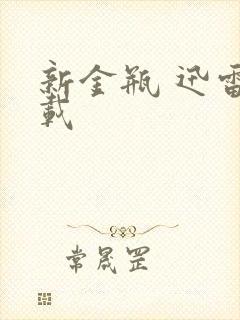 新金瓶 迅雷
载
常晟罡